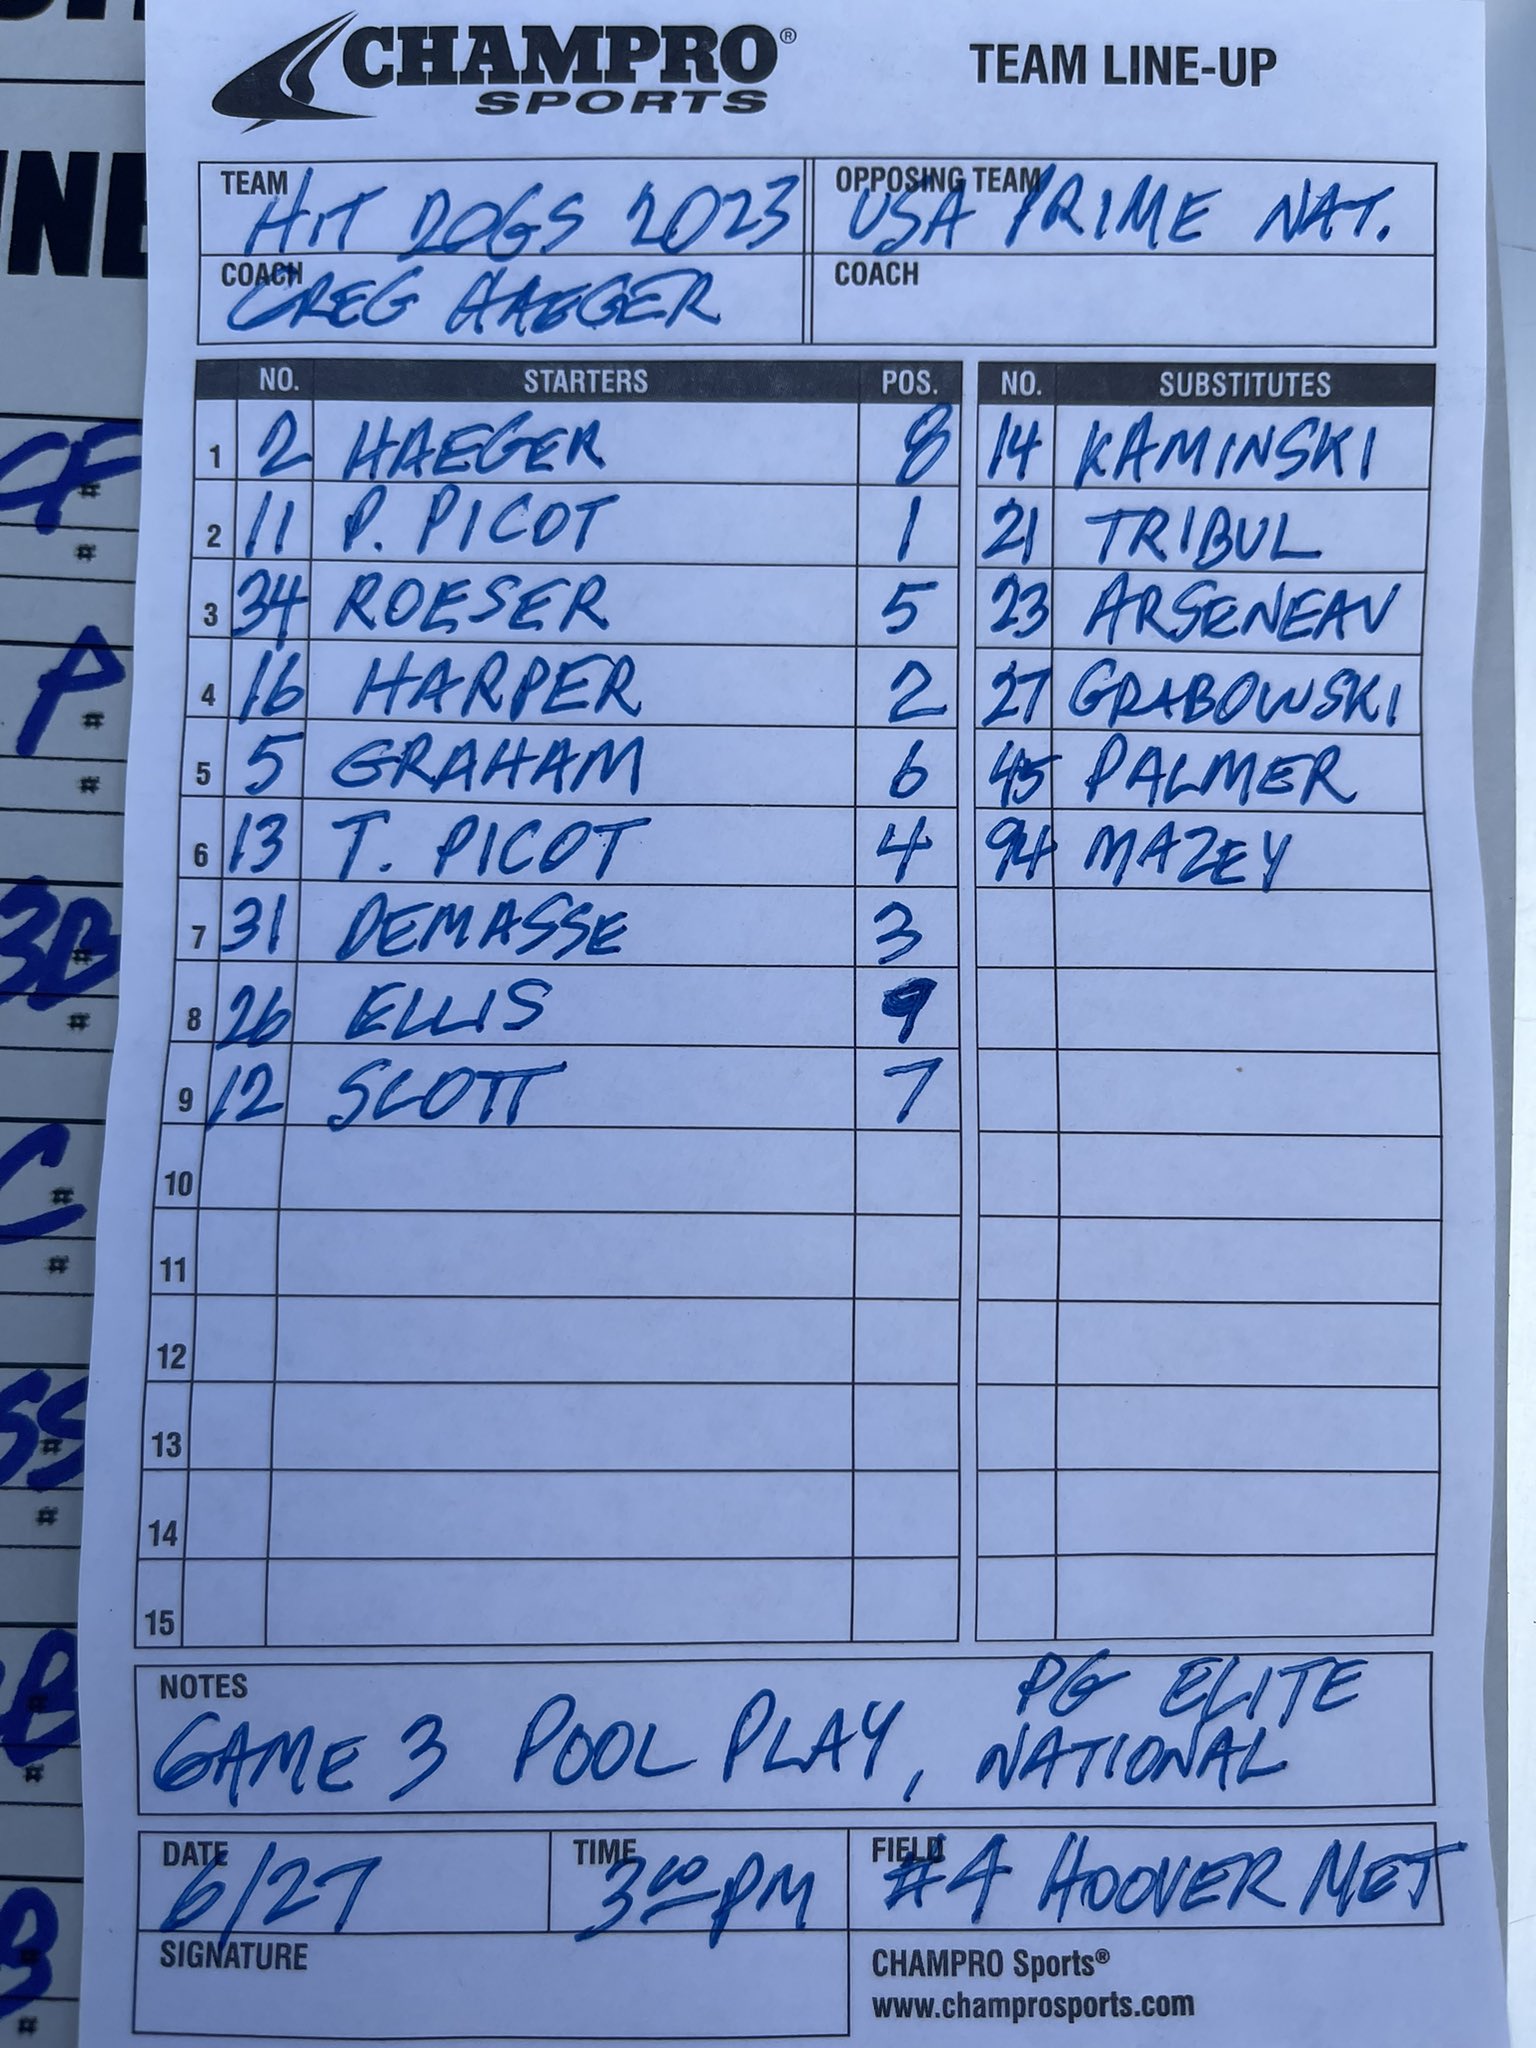 CHAMPRO®
SPORTS
TEAM LINE-UP
TEAM HIT DOGS 2023
OPPOSING TEAM USA PRIME NAT.
COACH GREG HAEGER
COACH
NO. STARTERS POS. NO. SUBSTITUTES
1 2 HAEGER 8 14 KAMINSKI
2 11 P. PICOT 1 21 TRIBUL
3 34 ROESER 5 23 ARSENEAU
4 16 HARPER 2 27 GRABOWSKI
5 5 GRAHAM 6 45 PALMER
6 13 T. PICOT 4 94 MAZEY
7 31 DEMASSE 3
8 26 ELLIS 9
9 12 SCOTT 7
10
11
12
13
14
15
NOTES
GAME 3 POOL PLAY, PG ELITE
NATIONAL
DATE 6/27
TIME 3:00 PM
FIELD #4 HOOVER MET
SIGNATURE
CHAMPRO Sports®
www.champrosports.com
CF
#
#
P
#
#
3B
#
#
C
#
#
SS
#
#
B
#
#
B
#
#